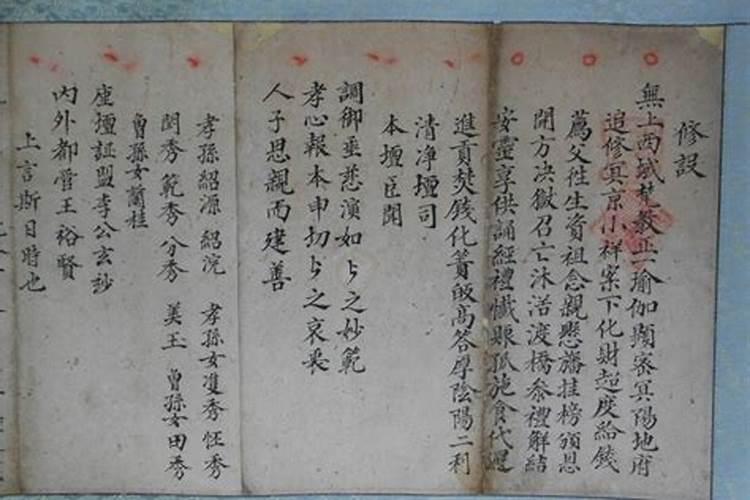 修設
無上西域梵教正一瑜伽顯密冥陽地府
追修冥京小祥案下化財超度給錢
薦父徃生資祖念親懸旛挂榜頒恩
開方决獄召亡沐浴渡橋叅禮解結
安靈享供誦經禮懺賑孤施食代還
進貢焚錢化簀皈髙答厚陰陽二利
清净壇司
本壇臣聞
調御垂慈演如之妙範
孝心報本申切之哀丧
人子思親而建善
孝孫紹源 紹浣 孝孫女雙秀 恇秀
閏秀 範秀 分秀 美玉 曾孫女田秀
曾孫女蘭桂
座壇証盟李公玄妙
内外都管王裕賢
上言斯日時也